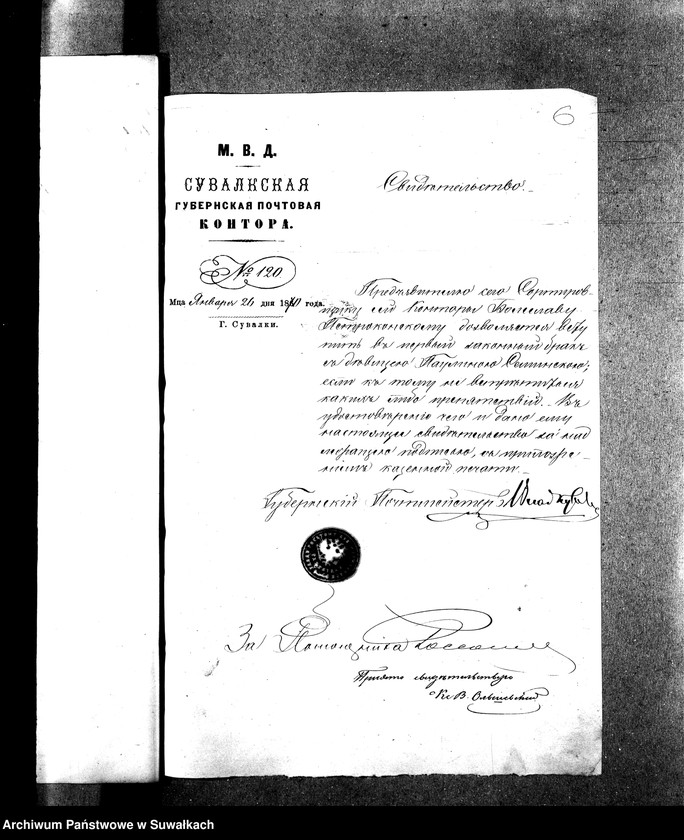 6
М. В. Д.
СУВАЛКСКАЯ
ГУБЕРНСКАЯ ПОЧТОВАЯ
КОНТОРА.
№ 120
Мца Января 24 дня 18 года.
Г. Сувалки.
Свидѣтельство.
Предъявителю сего Сортиров-
щику сей Конторы Болеславу
Петроконскому дозволяется всту
пить въ первый законный бракъ
съ дѣвицею Паулиною
если къ тому не встрѣтится
какихъ либо препятствій. Въ
удостовѣреніе чего и дано ему
настоящее свидѣтельство за над
лежащею подписью, съ приложе-
ніемъ казенной печати.
Губернскій Почтмейстеръ
За
Принято свидѣтельство
Кс. В. Ольшевскій
Archiwum Państwowe w Suwałkach